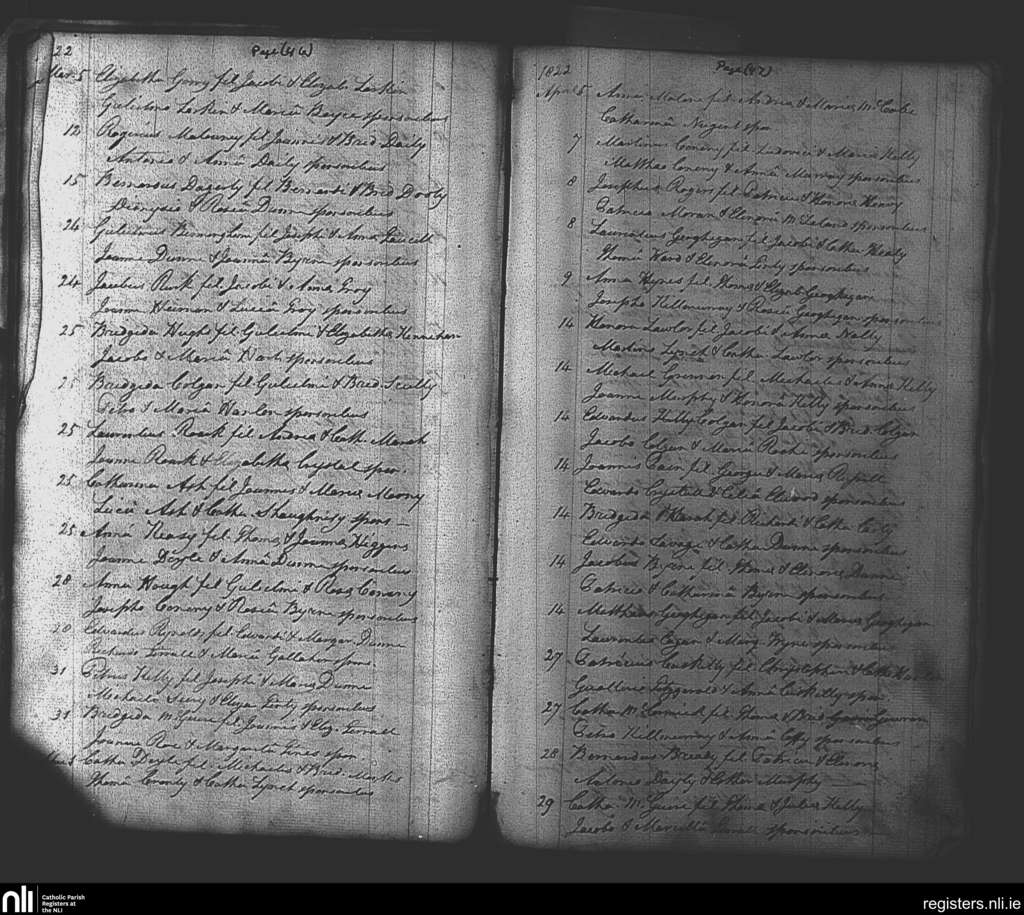 22
Page (46)
Mar. 5 Elizabetha Gorry fil. Jacobi & Elizab. Larkin
Gulielmo Larkin & Mariâ Boyce sponsoribus
12 Rogerius Malowney fil Joannis & Brid Daily
Antonio & Annâ Daily sponsoribus
15 Bernardus Dagerty fil Bernardi & Brid Dooly
Dionysio & Rosiâ Dunn sponsoribus
24 Gulielmus Birmingham fil Josephi & Anna
Joanne Dunn & Joannâ Byrne sponsoribus
24 Jacobus Rusk fil Jacobi & Anna Troy
Joanne Heenan & Luciâ Troy sponsoribus
25 Bridgida Hugh fil Gulielmi & Elizabetha
Jacobo & Mariâ Hart sponsoribus
25 Bridgida Colgan fil Gulielmi & Brid. Scully
Petro & Mariâ Hanlon sponsoribus
25 Laurentius Roark fil Andrea & Cath
Joanne Roark & Elizabetha Crystal spon.
25 Catharina Ash fil Joannis & Maria Mooney
Luciâ Ash & Catha Shaughnisy spons
25 Anna Heavy fil Thoma & Joanna Higgins
Joanne Doyle & Annâ Dunn sponsoribus
28 Anna Hough fil Gulielmi & Rosa Conerny
Josepho Conerny & Rosiâ Byrne sponsoribus
20 Edwardus Reynolds fil Edwardi & Margar. Dunne
& Mariâ Gallaher spons.
31 Petrus Kelly fil Josephi & Maria Dunne
Michaele & Eliza sponsoribus
31 Bridgida McGuire fil Joannis & Eliz.
Joanne & Margarita spon.
Catha Doyle fil Michaelis & Brid.
Thoma & Catha Lynch sponsoribus
1822
Page (47)
April 5 Anna Malone fil Andrea & Maria McCabe
Catharinâ Nugent spon
7 Martinus Conerny fil Ludovici & Maria Kelly
Matthao Conerny & Annâ Murray sponsoribus
8 Josephus Rogers fil Patricii & Honora Henry
Patricio Moran & Elenorâ sponsoribus
8 Laurentius Geoghegan fil Jacobi & Catha Heavy
Thoma Ward & Elenorâ sponsoribus
9 Anna Hynes fil Thoma & Elizab Geoghegan
Josepho Killmurray & Rosiâ Geoghegan sponsoribus
14 Honora Lawlor fil Jacobi & Anna Nally
Martino Lynch & Catha Lawlor sponsoribus
14 Michael Grennon fil Michaelis & Anna Kelly
Joanne Murphy & Honorâ Kelly sponsoribus
14 Edwardus Kelly Colgan fil Jacobi & Brid. Colgan
Jacobo Colgan & Mariâ Roche sponsoribus
14 Joannis Cain fil Georgii & Maria
Edwardo Crystal & Celiâ sponsoribus
14 Bridgida fil Richardi & Catha
Edwardo Savage & Catha Dunne sponsoribus
14 Jacobus Byrne fil Thoma & Elenora Dunne
Patricio & Catharinâ Byrne sponsoribus
14 Matthaus Geoghegan fil Jacobi & Maria Geoghegan
Laurentio Egan & Marg. Byrne sponsoribus
27 Patricius Cuskelly fil Christopheri & Catha
Gualtero Fitzgerald & Annâ Cuskelly spon
27 Catha McCormick fil Thoma & Brid
Petro Killmurray & Annâ sponsoribus
28 Bernardus fil Patricii & Elenora
Antonio Dayly & Esther Murphy
29 Catha McGuire fil Thoma & Julia Kelly
Jacobo & Marcellâ sponsoribus
nli
Catholic Parish
Registers at
the NLI
registers.nli.ie